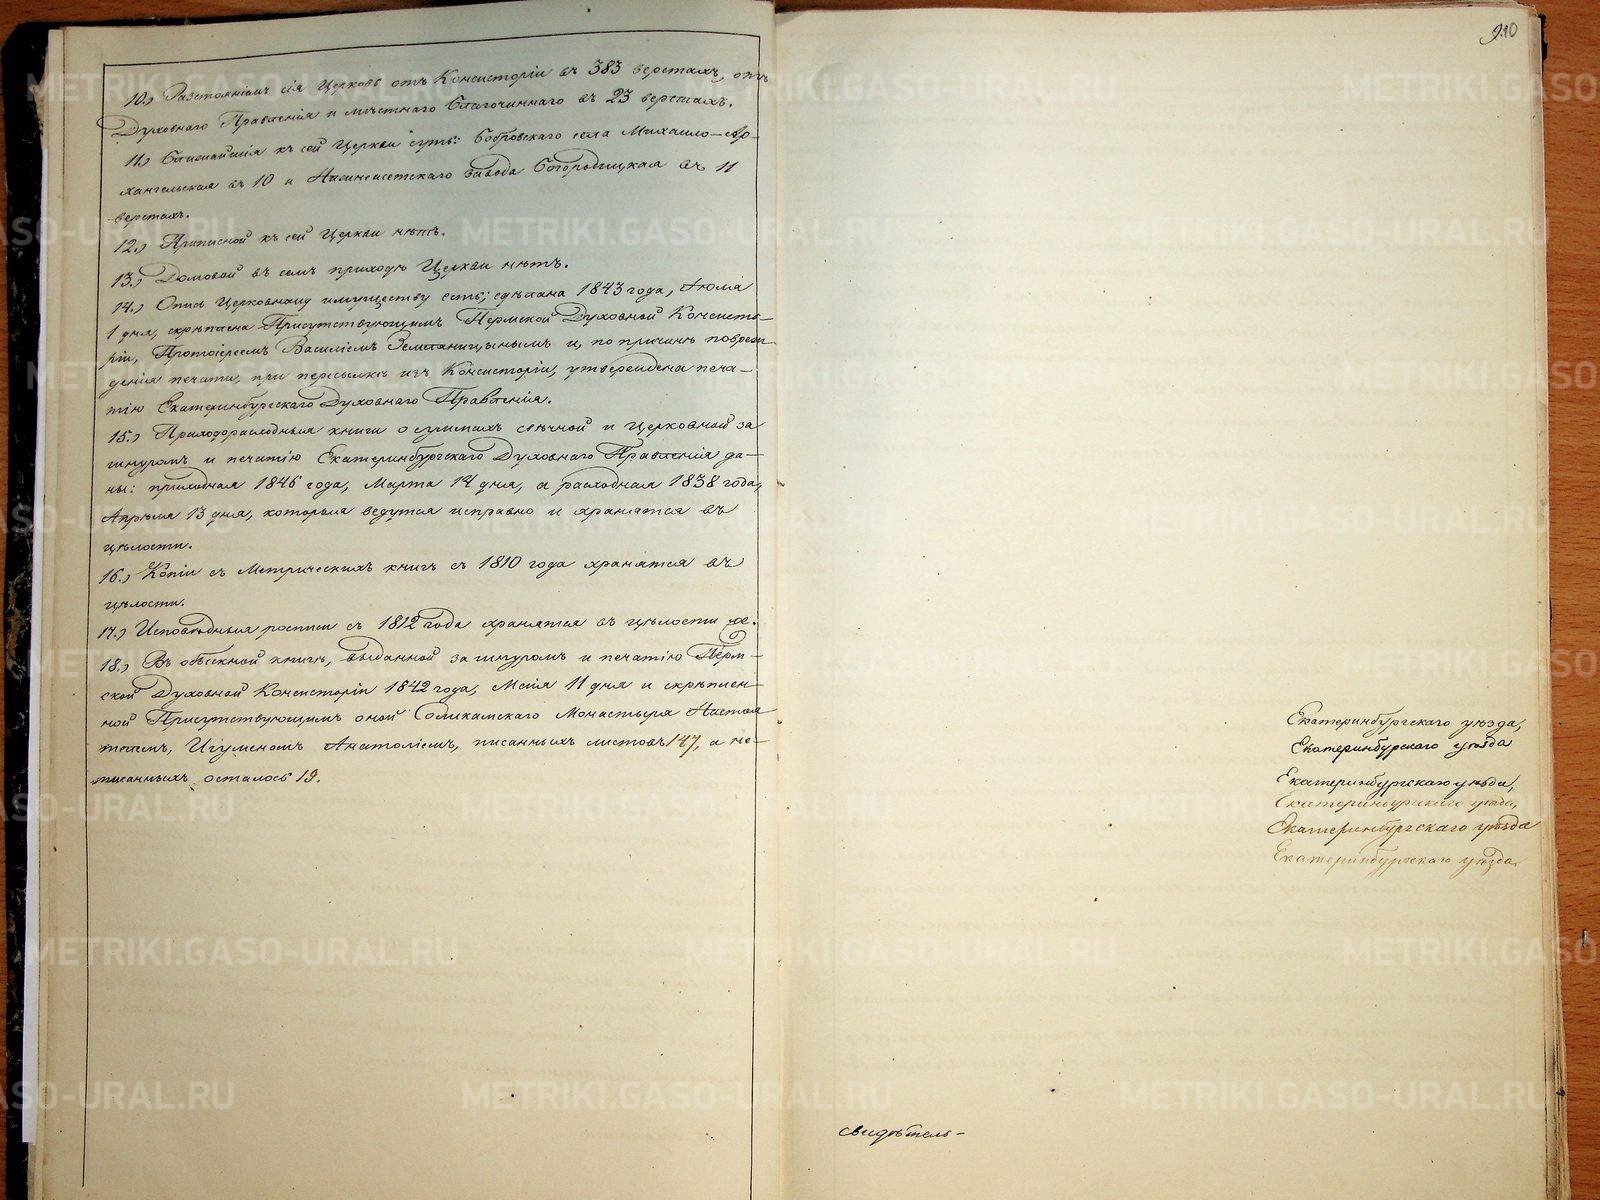 10.) Разстоянiемъ сiя Церковь отъ Консисторiи въ 383 верстахъ, отъ
Духовнаго Правленiя и мѣстнаго Благочиннаго въ 23 верстахъ.
11.) Ближайшiя къ сей Церкви суть: Бобровскаго села Михаило-Ар-
хангельская въ 10 и Нижнеисетскаго завода Богородицкая въ 11
верстахъ.
12.) Приписной къ сей Церкви нѣтъ.
13.) Домовой въ семъ приходѣ Церкви нѣтъ.
14.) Опись Церковному имуществу есть; сдѣлана 1843 года, Iюля
1 дня, скрѣплена Присутствующимъ Пермской Духовной Консисто-
рiи, Протоiереемъ Василiемъ Земляницынымъ и, по причинѣ повреж-
денiя печати, при пересылкѣ изъ Консисторiи, утверждена печа-
тiю Екатеринбургскаго Духовнаго Правленiя.
15.) Приходорасходныя книги о суммахъ свѣчной и Церковной за
шнуромъ и печатiю Екатеринбургскаго Духовнаго Правленiя да-
ны: приходная 1846 года, Марта 14 дня, а расходная 1838 года,
Апрѣля 13 дня, которыя ведутся исправно и хранятся въ
цѣлости.
16.) Копiи съ Метрическихъ книгъ съ 1810 года хранятся въ
цѣлости.
17.) Исповѣдныя росписи съ 1812 года хранятся въ цѣлости же.
18.) Въ обыскной книгѣ, выданной за шнуромъ и печатiю Перм-
ской Духовной Консисторiи 1842 года, Маiя 11 дня и скрѣплен-
ной Присутствующимъ оной Соликамскаго Монастыря Настоя
телемъ, Игуменомъ Анатолiемъ, писанныхъ листовъ 147, а не-
писанныхъ осталось 19.
910
Екатеринбургскаго уѣзда,
Екатеринбурскаго уѣзда
Екатеринбургскаго уѣзда,
Екатеринбургскаго уѣзда,
Екатеринбургскаго уѣзда
Екатеринбургскаго уѣзда
свидѣтель-
METRIKI.GASO-URAL.RU